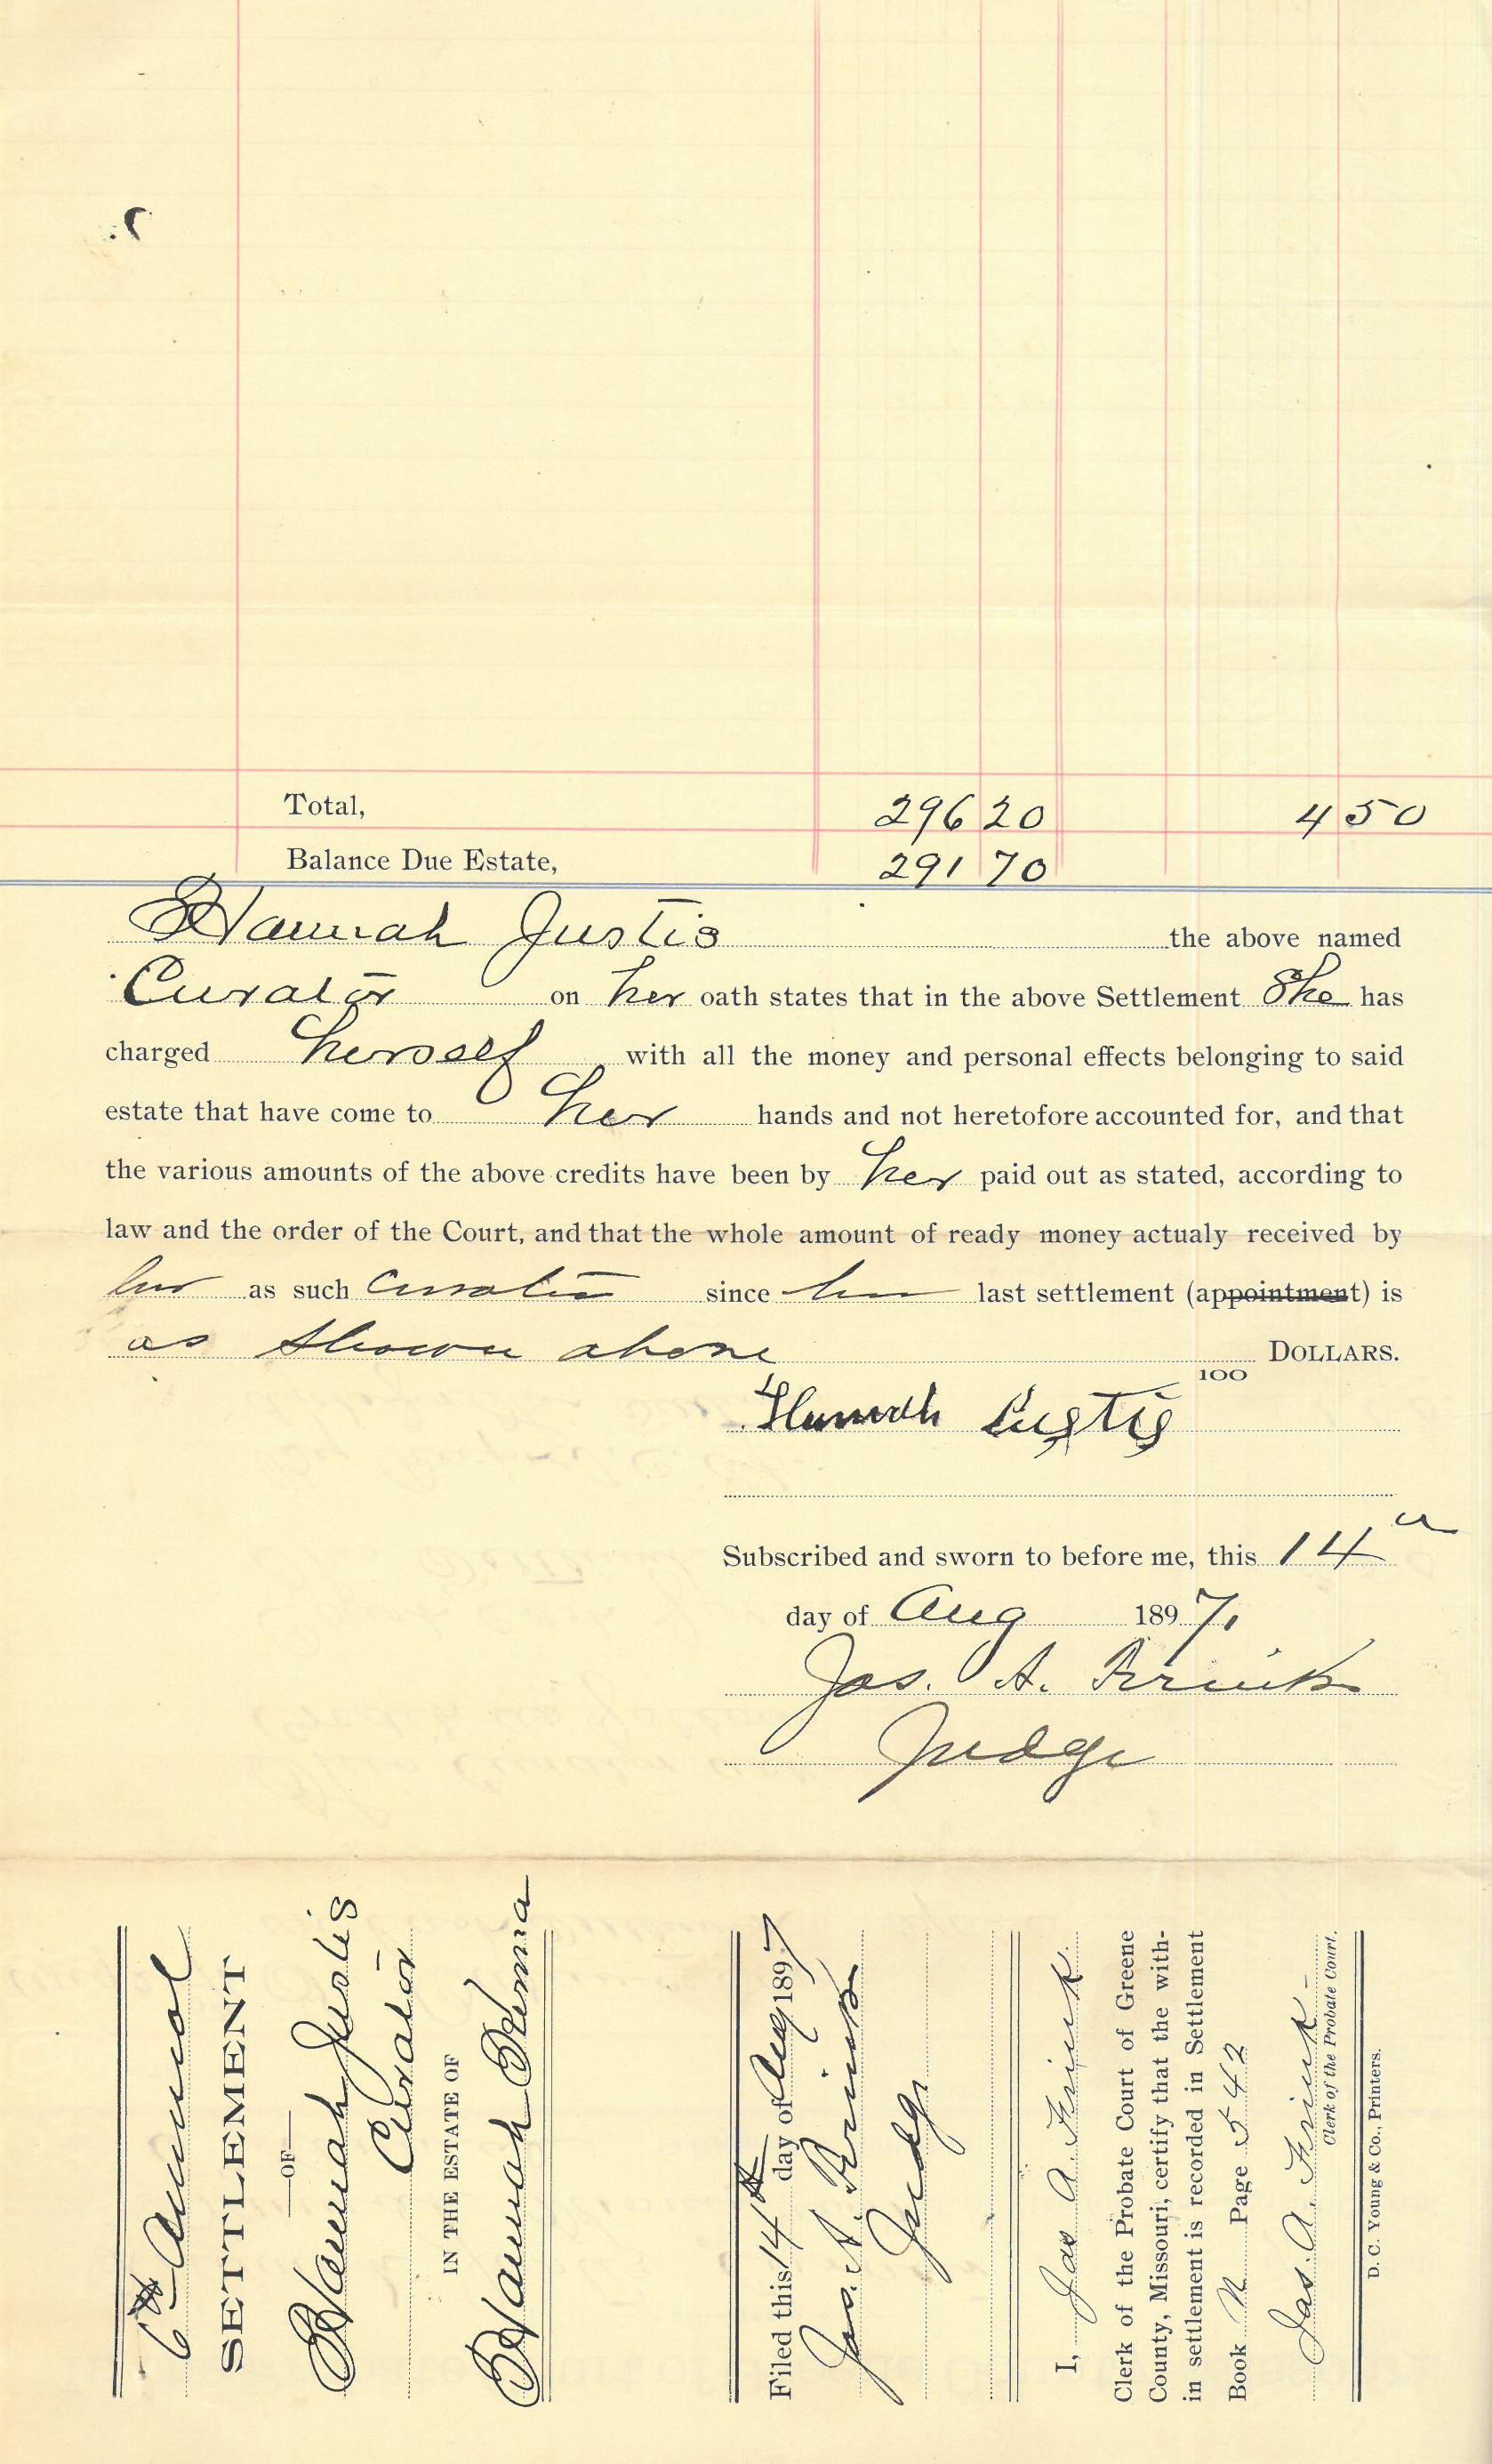 Total, 296 20 4 50
Balance Due Estate, 291 70
Hannah Justis the above named
Curator on her oath states that in the above Settlement She has
charged herself with all the money and personal effects belonging to said
estate that have come to her hands and not heretofore accounted for, and that
the various amounts of the above credits have been by her paid out as stated, according to
law and the order of the Court, and that the whole amount of ready money actualy received by
her as such Curator since her last settlement (appointment) is
as shown above DOLLARS.
100
Hannah Justis
Subscribed and sworn to before me, this 14
day of Aug 1897.
Jos. A. Frink
Judge
6th Annual
SETTLEMENT
—OF—
Hannah Justis
Curator
IN THE ESTATE OF
Hannah
Filed this 14th day of Aug 1897
Jos. A. Frink
Judge
I, Jas A. Frink
Clerk of the Probate Court of Greene
County, Missouri, certify that the with-
in settlement is recorded in Settlement
Book N Page 542
Jas. A. Frink
Clerk of the Probate Court.
D. C. Young & Co., Printers.